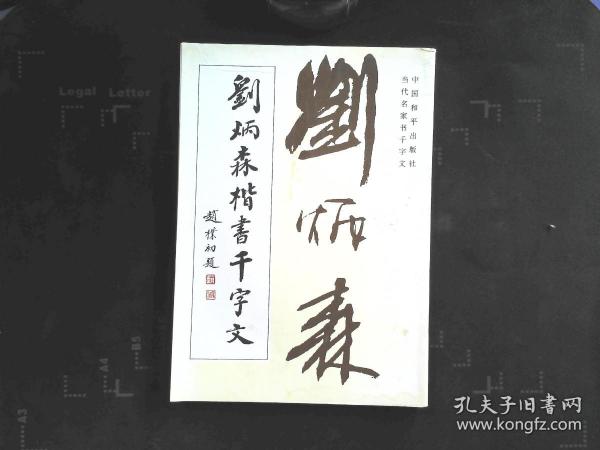 中国和平出版社
当代名家书千字文
劉炳森
劉炳森楷書千字文
趙樸初題
Legal
Letter
A4
B5
A3
孔夫子旧書网
www.kongfz.com